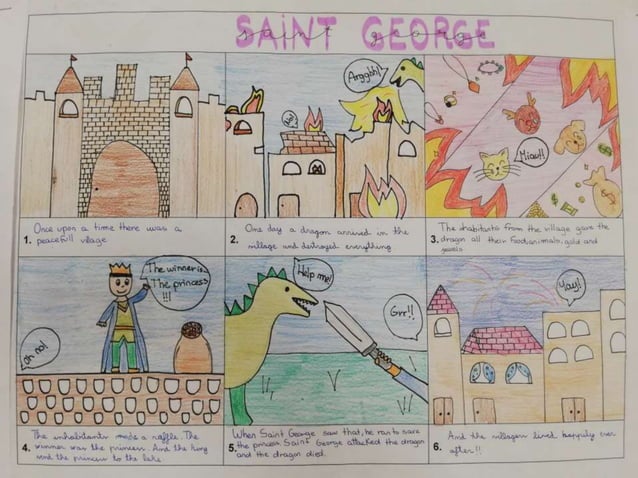 SAINT GEORGE
saint george
1. Once upon a time there was a
peacefull village
Help!
Arggbh!
2. One day a dragon arrived in the
village and destroyed everything
Miau!!
3. The inhabitants from the village gave the
dragon all their food, animals, gold and
jewels
Oh no!
The winner is...
The princess
!!!
4. The inhabitants made a raffle. The
winner was the princess. And the king
send the princess to the lake.
Help me!
Grr!!
5. When Saint George saw that, he ran to save
the princess Saint George attacked the dragon
and the dragon died.
Yay!!
6. And the villagers lived happily ever
after!!